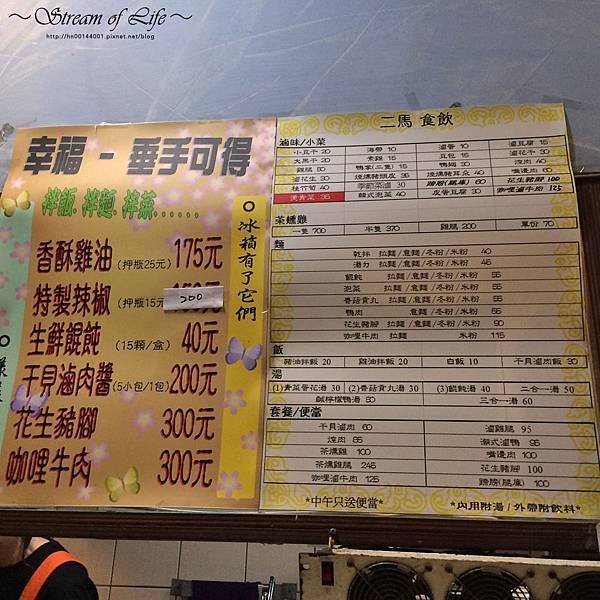 ～Stream of Life～
http://hn00144001.pixnet.net/blog
幸福 - 垂手可得
拌飯.拌麵.拌菜......
香酥雞油 (押瓶25元) 175元
特製辣椒 (押瓶15元 200 元
生鮮餛飩 (15顆/盒) 40元
干貝滷肉醬 (5小包/1包) 200元
花生豬腳 300元
咖哩牛肉 300元
冰箱有了它們
二馬 食飲
滷味/小菜
小豆干 20 海帶 10 滷蛋 10 滷豆腐 15
大黑干 30 素雞 15 豆包 15 滷花干 30
雞腿 50 鴨掌(三隻) 15 鴨翅 30 焢肉 40
滷花生 30 煙燻豬頭皮 35 煙燻豬耳朵 40 嘴邊肉 60
桂竹筍 40 季節菜滷 30 蹄膀(腿庫) 60 花生豬腳 100
燙青菜 35 韓式泡菜 40 皮蛋豆腐 30 咖哩滷牛肉 125
茶燻雞
一隻 700 半隻 370 雞腿 200 單份 70
麵
乾拌 拉麵/意麵/冬粉/米粉 40
湯力 拉麵/意麵/冬粉/米粉 45
餛飩 拉麵/意麵/冬粉/米粉 55
泡菜 拉麵/意麵/冬粉/米粉 55
香菇貢丸 拉麵/意麵/冬粉/米粉 55
鴨肉 意麵/冬粉/米粉 65
花生豬腳 拉麵/意麵/冬粉/米粉 90
咖哩牛肉 拉麵 米粉 115
飯
豬油拌飯 20 雞油拌飯 20 白飯 10 干貝滷肉飯 30
湯
(1)青菜蛋花湯 30 (2)香菇貢丸湯 30 (3)餛飩湯 40 二合一湯 50
鹹檸檬鴨湯 50 三合一湯 60
套餐/便當
干貝滷肉 60 滷雞腿 95
焢肉 85 潮式滷鴨 95
茶燻雞 100 嘴邊肉 100
茶燻雞腿 245 花生豬腳 100
咖哩滷牛肉 125 蹄膀(腿庫) 100
*中午只送便當* *內用附湯/外帶附飲料*